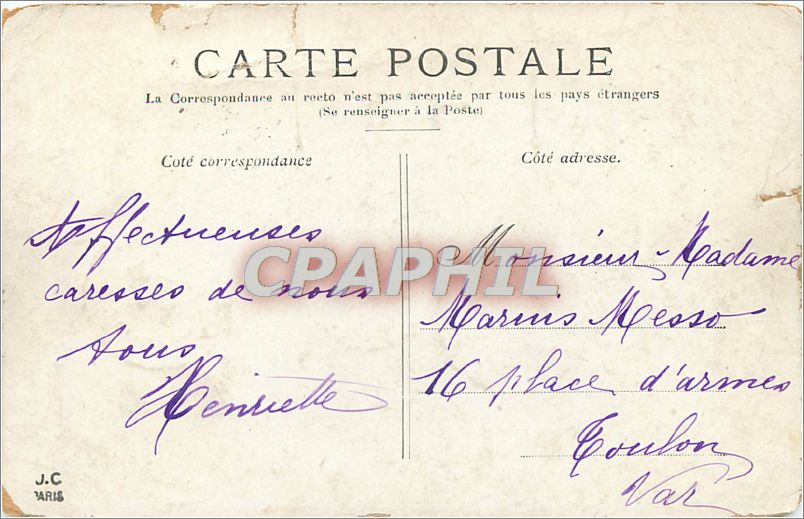 CARTE POSTALE
La Correspondance au recto n'est pas acceptée par tous les pays étrangers
(Se renseigner à la Poste)
Coté correspondance
Côté adresse.
Affectueuses
caresses de nous
tous
Henriette
Monsieur - Madame
Marius Messo
16 place d'armes
Toulon
Var
CPAPHIL
J.C
PARIS